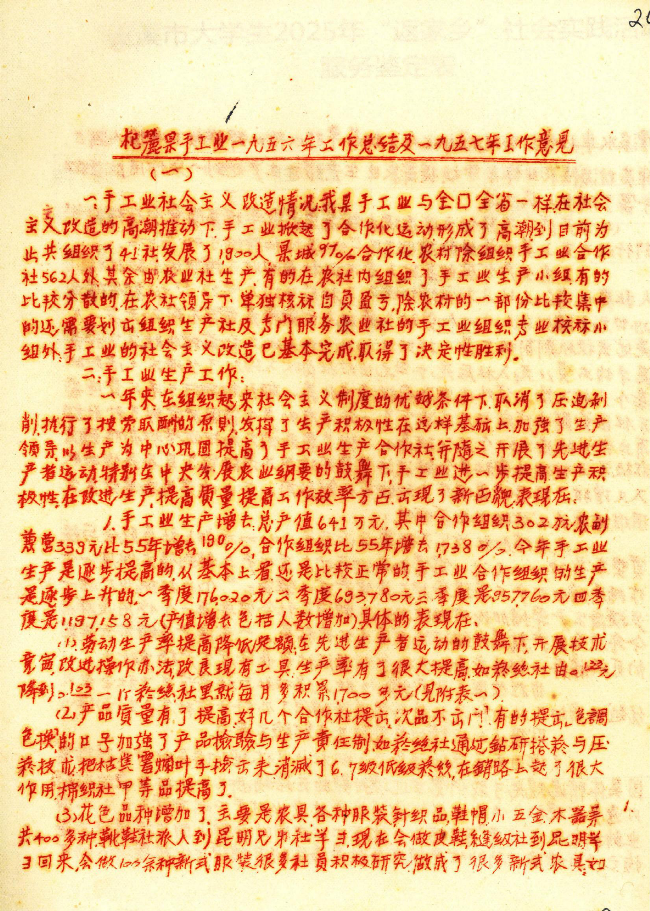 杞麓县手工业一九五六年工作总结及一九五七年工作意见
(一)
一、手工业社会主义改造情况我县手工业与全口全省一样在社会
主义改造的高潮推动下手工业掀起了合作化运动形成了高潮到目前为
止共组织了41社发展了1800人县城97%合作化农村除组织手工业合作
社562人外其余由农业社生产,有的在农社内组织了手工业生产小组有的
比较分散的,在农社领导下单独核祘自负盈亏,除农村的一部份比较集中
的还需要划出组织生产社及专门服务农业社的手工业组织专业核祘小
组外,手工业的社会主义改造已基本完成取得了决定性胜利。
二、手工业生产工作:
一年来,在组织起来社会主义制度的优越条件下,取消了压迫剥
削,执行了按劳取酬的原则,发挥了生产积极性在这样基础上加强了生产
领导以生产为中心巩固提高了手工业生产合作社并随之开展了先进生
产者运动特别在中央发展农业纲要的鼓舞下,手工业进一步提高生产积
极性在改进生产,提高质量提高工作效率方面出现了新面貌表现在:
1.手工业生产增长,总产值641万元,其中合作组织302万元,农副
营339元比55年增长190%,合作组织比55年增长1738%.今年手工业
生产是逐步提高的,从基本上看还是比较正常的手工业合作组织的生产
是逐步上升的一季度176020元二季度693780元三季度是957760元四季
度是1197158元(产值增长包括人数增加)具体的表现在:
(1).劳动生产率提高降低定额在先进生产者运动的鼓舞下,开展技术
竞赛,改进操作办法改良现有工具,生产率有了很大提高,如菸丝社由0.122元
降到0.103一个菸丝社里就每月多积累1700多元(见附表一)
(2).产品质量有了提高,好几个合作社提出"次品不出门"有的提出"色调
的口号加强了产品检验与生产责任制,如菸丝社通过钻研搭菸与压
菸技术把烟叶手捡出来消减了6.7级低级菸丝,在销路上起了很大
作用棉织社甲等品提高了。
(3)花色品种增加了,主要是农具各种服装针织品鞋帽小五金木器等
共400多种靴鞋社派人到昆明兄弟社学习,现在会做皮鞋缝纫社到昆明学
习回来,会做100余种新式服装很多社员积极研究,做成了很多新式农具,如